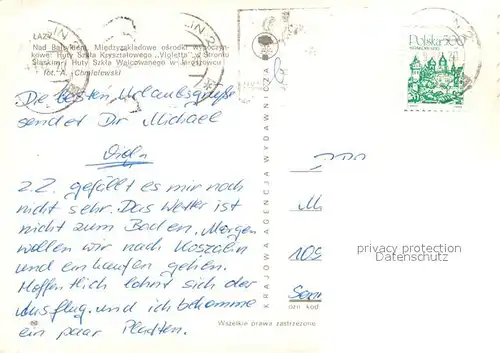 ŁAZY
Nad Bałtykiem. Międzyzakładowe ośrodki wypoczyn-
kowe: Huty Szkła Kryształowego „Violetta" w Stroniu
Śląskim i Huty Szkła Walcowanego w Jaroszowcu
fot. A. Chmielewski
Die besten Urlaubsgrüße
sendet Dir Michael
z.Z. gefällt es mir noch
nicht sehr. Das Wetter ist
nicht zum Baden. Morgen
wollen wir nach Koszalin
und einkaufen gehen.
Hoffentlich lohnt sich der
Ausflug. und ich bekomme
ein paar Platten.
KRAJOWA AGENCJA WYDAWNICZA
Polska 500
M
109
privacy protection
Datenschutz
Wszelkie prawa zastrzeżone